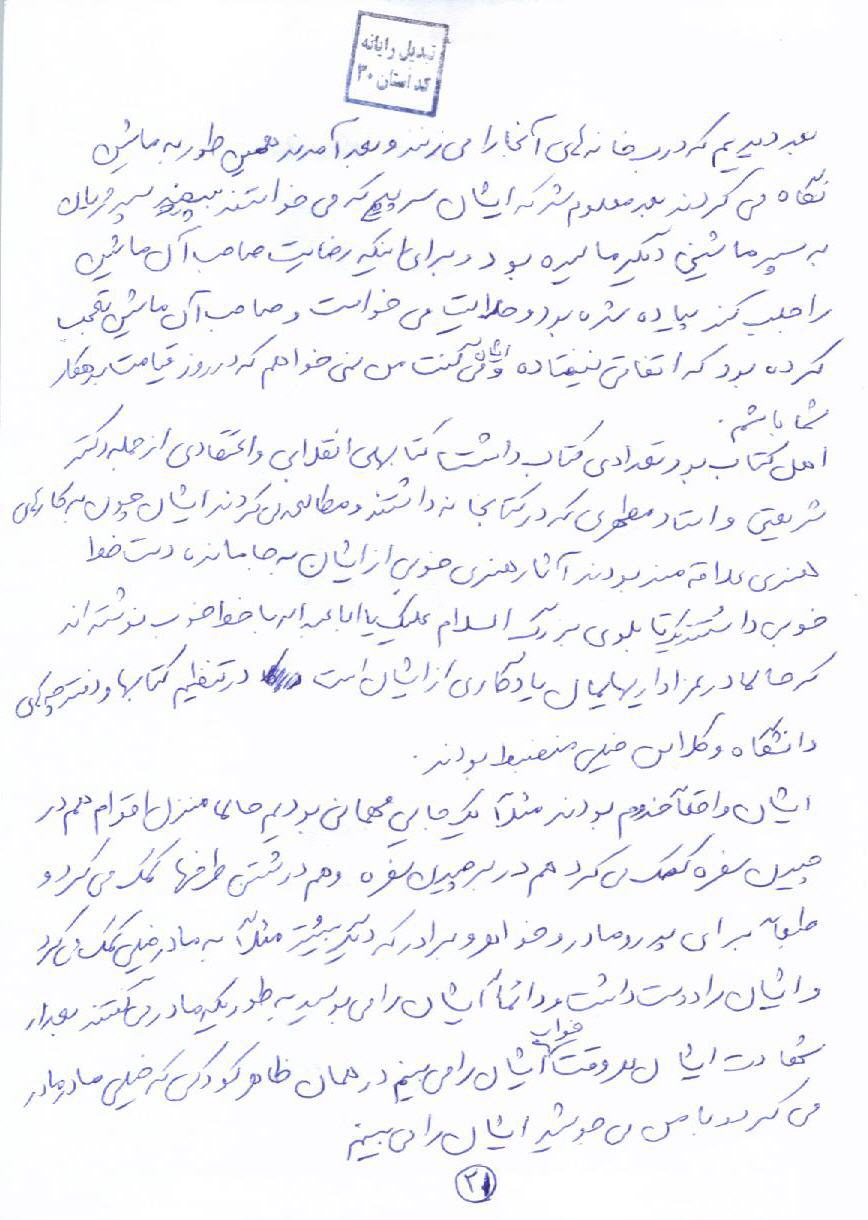 تبدیل رایانه
کد استان ۳۰
بعد دیدیم که درب خانه های آنجا را می زنند و بعد آمدند همین طور به ماشین
نگاه می کردند بعد معلوم شد که ایشان سر پیچ که می خواستند بپیچند سپر مربان
به سپر ماشینی دیگر مالیده بود و برای اینکه رضایت صاحب آن ماشین
را جلب کند پیاده شده بود و حلالیت می خواست و صاحب آن ماشین تعجب
کرده بود که اتفاقی نیفتاده و ایشان می گفت من نمی خواهم که در روز قیامت بدهکار
شما باشم.
اهل کتاب بود تعدادی کتاب داشت کتابهای انقلابی و اعتقادی از جمله دکتر
شریعتی و استاد مطهری که در کتابخانه داشتند و مطالعه می کردند ایشان چون به کارهای
هنری علاقه مند بودند آثار هنری خوبی از ایشان به جا مانده دست خط
خوبی داشتند یک تابلوی بزرگ السلام علیک یا ابا عبداله با خط خوب نوشته اند
که حالا در عزاداریهایمان یادگاری از ایشان است در تنظیم کتابها و دفترچه های
دانشگاه و کلاس خیلی منضبط بودند.
ایشان واقعاً خدوم بودند مثلاً یک جایی مهمانی بودیم حالا منزل اقوام هم در
چیدن سفره کمک می کرد هم در برچیدن سفره وهم در شستن ظرفها کمک می کرد و
طبعاً برای پدر و مادر و خواهر و برادر که دیگر بیشتر مثلاً به مادر خیلی کمک می کرد
و ایشان را دوست داشت و دائماً ایشان را می بوسید به طوریکه مادر می گفتند بعد از
شهادت ایشان هر وقت خواب ایشان را می بینم در همان ظاهر کودکی که خیلی مادر مادر
می کرد و با من می جوشید ایشان را می بینم
۲